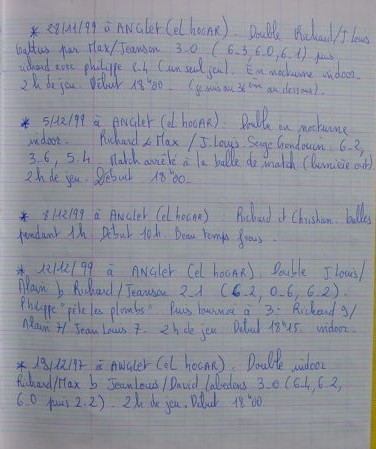 * 28/11/99 à ANGLET (el hogar). Double Richard/J.Louis
battus par Max/Jeanson 3_0 (6_3, 6_0, 6_1) puis
richard avec philippe 6_4 (un seul jeu). En nocturne indoor.
2h de jeu. Début 18h00. (je suis au 36ème au dessous).
* 5/12/99 à ANGLET (el hogar). Double en nocturne
indoor. Richard & Max / J.Louis Serge 6_2,
3_6, 5_4. Match arrêté à la balle de match (lumière out).
2h de jeu. Début 18h00.
* 8/12/99 à ANGLET (el hogar) Richard et Christian. balles
pendant 1h Début 10h. Beau temps frais.
* 12/12/99 à ANGLET (el hogar). Double J.Louis/
Alain b Richard/Jeanson 2_1 (6_2, 0_6, 6_2).
Philippe "pète les plombs". Puis tournoi à 3: Richard 9/
Alain 7/ Jean Louis 7. 2h de jeu Début 18h15. indoor.
* 19/12/97 à ANGLET (eL hogar). Double indoor
Richard/Max b Jean Louis/David Labedens 3_0 (6_4, 6_2,
6_0 puis 2_2). 2h de jeu. Début 18h00.